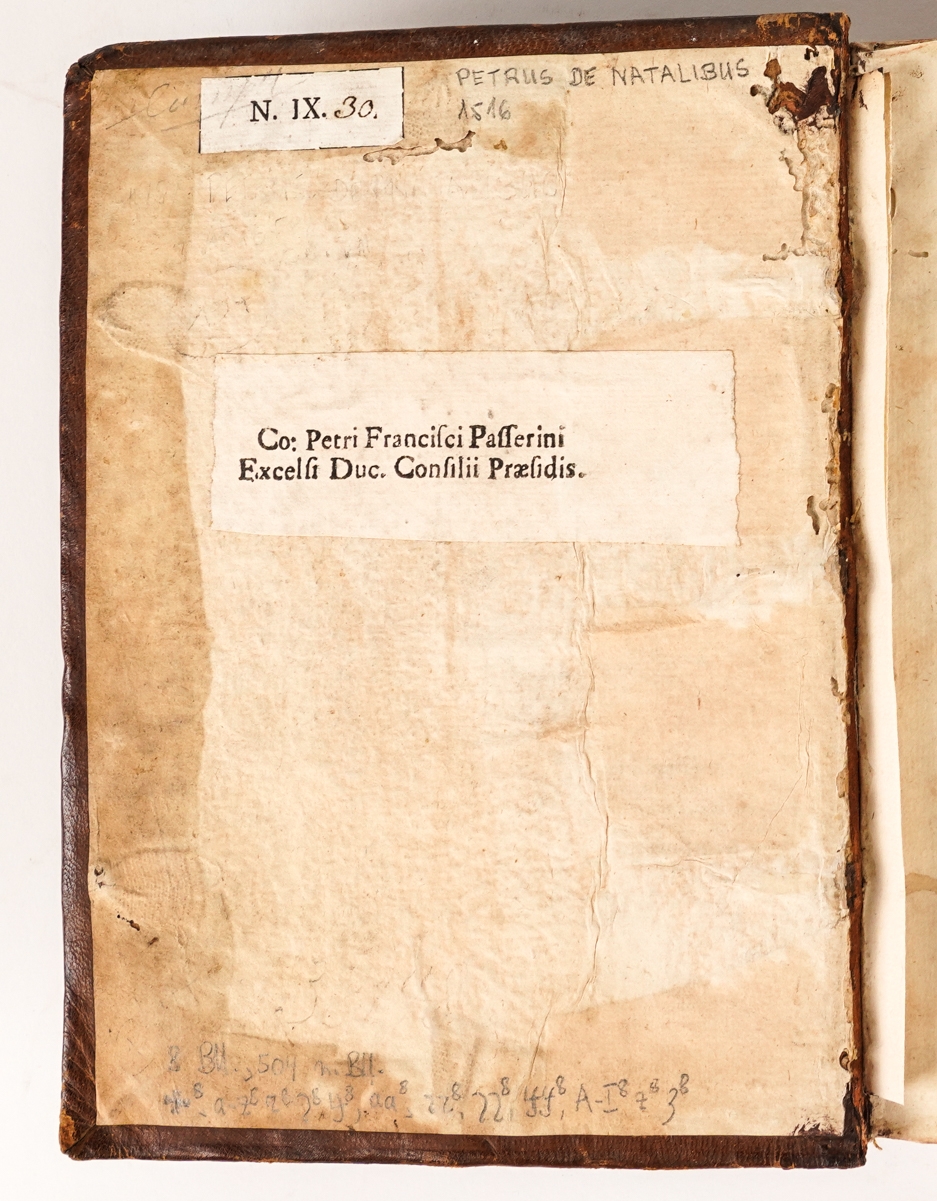 N. IX. 30.
PETRUS DE NATALIBUS
1516
Co: Petri Franciſci Paſſerini
Excelſi Duc. Conſilii Præſidis.
8 Bll., 504 n. Bll.